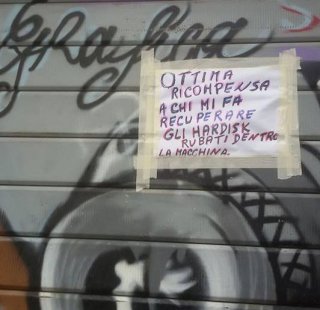 Grafica
OTTIMA
RICOMPENSA
A CHI MI FA
RECUPERARE
GLI HARDISK
RUBATI DENTRO
LA MACCHINA.